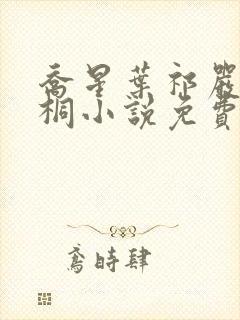 喬星葉祁嚴
桐小說免費
鳶時肆